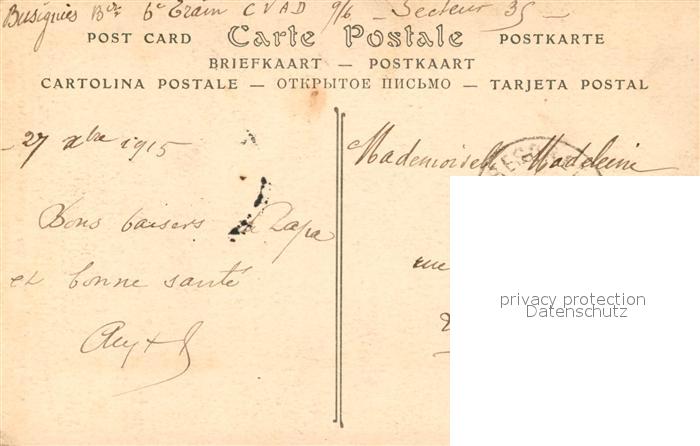 6e Train CVAD 9/6 - Secteur 35 -
POST CARD Carte Postale POSTKARTE
BRIEFKAART — POSTKAART
CARTOLINA POSTALE — ОТКРЫТОЕ ПИСЬМО — TARJETA POSTAL
- 27 Xbre 1915
Mademoiselle Madeleine
Bons baisers Papa
et bonne santé
rue
privacy protection
Datenschutz